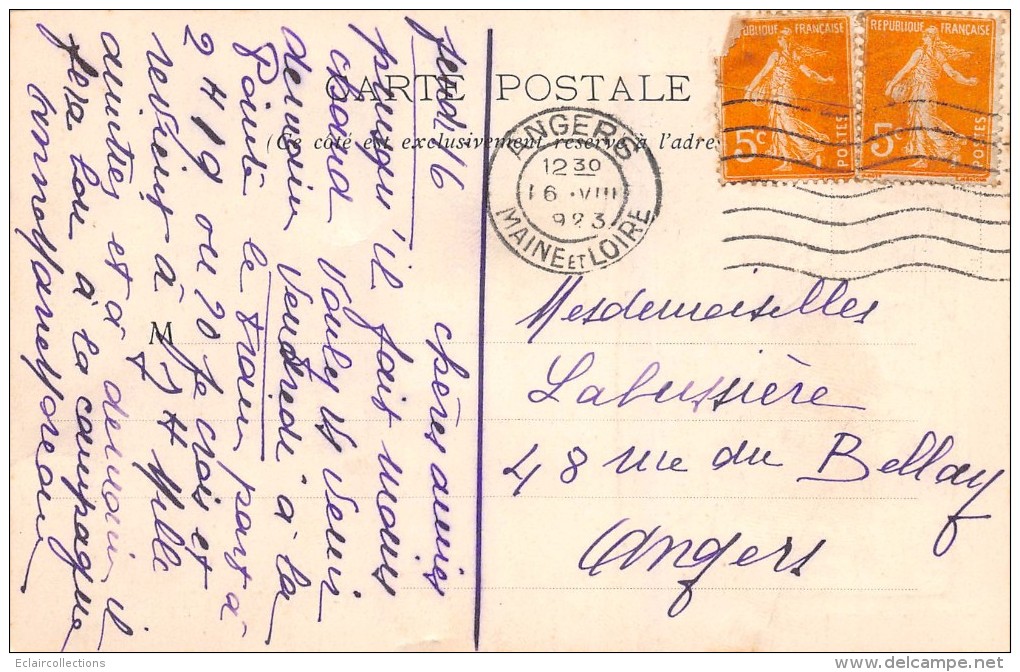 CARTE POSTALE
(Ce côté est exclusivement réservé à l'adres
RÉPUBLIQUE FRANÇAISE
5c
POSTES
REPUBLIQUE FRANÇAISE
5
POSTES
ANGERS
12 30
16 · VIII
923
MAINE ET LOIRE
M
Mesdemoiselles
Labussière
48 rue du Bellay
Angers
Jeudi 16
chères amies
puisqu'il fait moins
chaud voulez vs venir
demain Vendredi à la
Pointe le train part à
2 H 19 ou 20 je crois et
revient à 7 H Mille
amitiés et à demain, il
fera bon à la campagne
Eclaircollections
www.delcampe.net